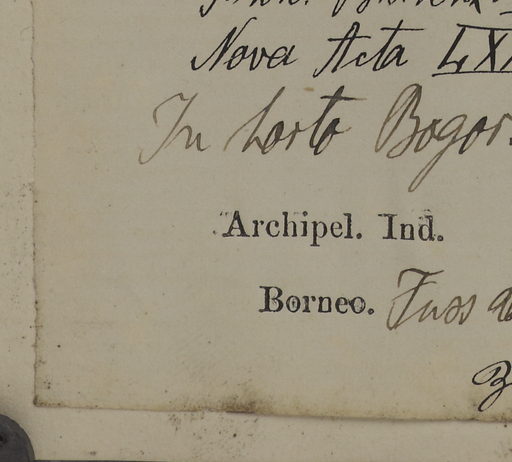 Nova Acta LXI
In horto Bogor.
Archipel. Ind.
Borneo.